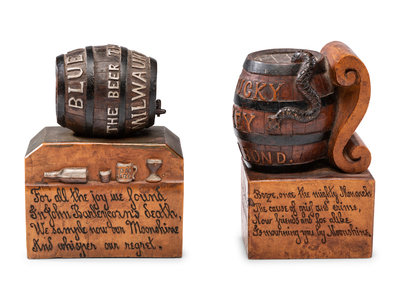 BLUE
THE BEER T
MILWAUK
For all the joy we found
In John Barleycorn's death,
We sample now our Moonshine
And whisper our regret.
CKY
EY
OND.
once the mighty Monarch
The cause of and crime,
Now friends and foe alike
mourning you by Moonshine.